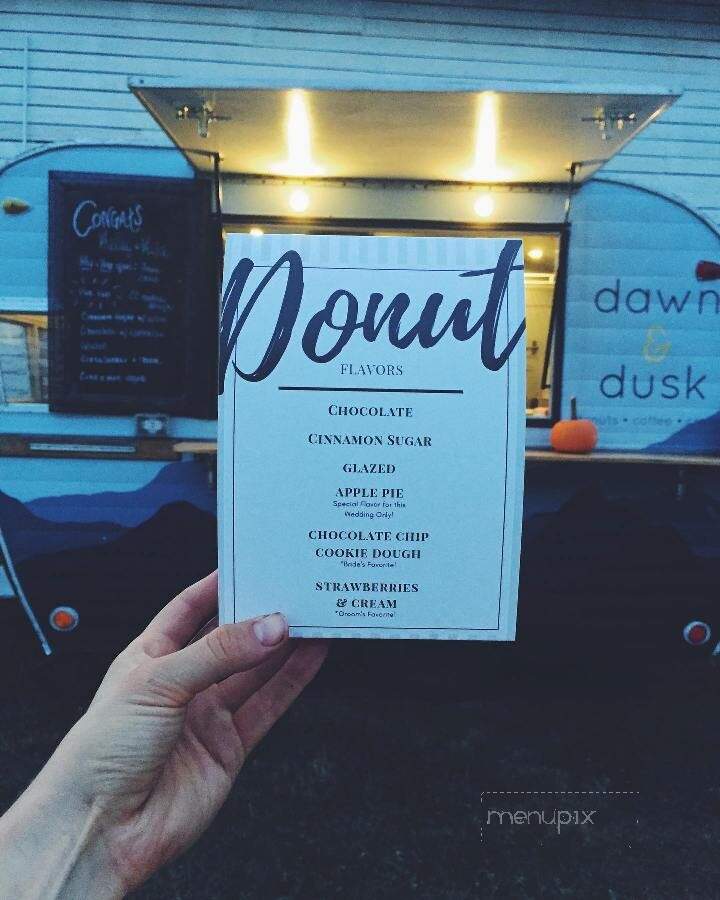 CONGATS
Donut
FLAVORS
CHOCOLATE
CINNAMON SUGAR
GLAZED
APPLE PIE
Special Flavor for this
Wedding Only!
CHOCOLATE CHIP
COOKIE DOUGH
*Bride's Favorite!
STRAWBERRIES
& CREAM
*Groom's Favorite!
dawn
&
dusk
coffee
menupix